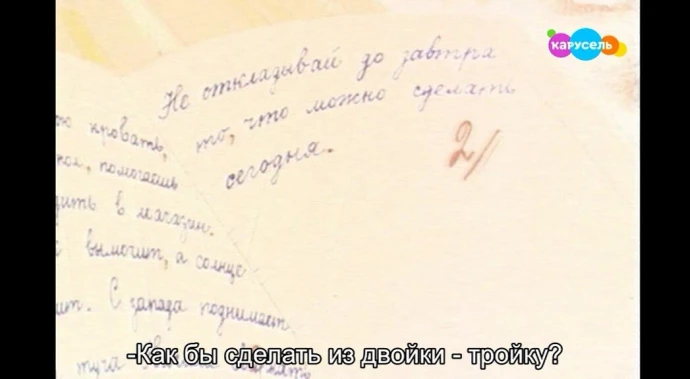 карусель
Не откладывай до завтра
то, что можно сделать
сегодня.
2/
кровать,
помогаешь
в магазин.
вымочит, а солнце
С запада поднимает
туча
-Как бы сделать из двойки - тройку?